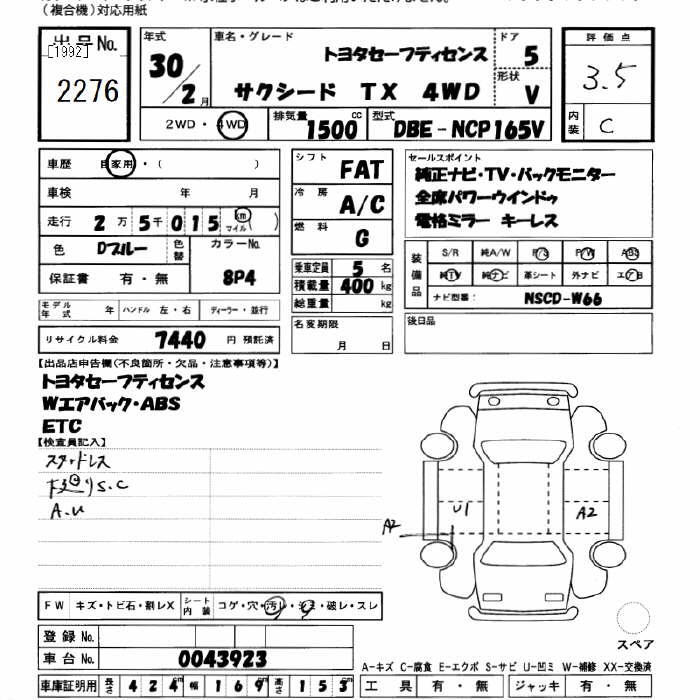 (複合機)対応用紙
出品No. [1992] 2276
年式 30/2月
車名・グレード トヨタセーフティセンス
サクシード TX 4WD
ドア 5
形状 V
評価点 3.5
内装 C
2WD・4WD
排気量 1500 cc
型式 DBE-NCP165V
車歴 自家用・( )
車検 年 月
走行 2万5千015 km マイル( )
色 Dブルー
色替
カラーNo. 8P4
保証書 有・無
モデル年式 年 ハンドル 左・右 ディーラー・並行
リサイクル料金 7440 円 預託済
シフト FAT
冷房 A/C
燃料 G
乗車定員 5 名
積載量 400 kg
総重量 kg
名変期限
月 日
セールスポイント
純正ナビ・TV・バックモニター
全席パワーウインドゥ
電格ミラー キーレス
装備品
S/R 純A/W P/S P/W ABS
純TV 純ナビ 革シート 外ナビ エアB
ナビ型番: NSCD-W66
後日品
【出品店申告欄(不良箇所・欠品・注意事項等)】
トヨタセーフティセンス
Wエアバック・ABS
ETC
【検査員記入】
スタッドレス
下廻りS.C
A.U
U1
A2
A2
FW キズ・トビ石・割レX
シート内装 コゲ・穴・汚レ・シミ・破レ・スレ
登録No.
車台No. 0043923
スペア
A-キズ C-腐食 E-エクボ S-サビ U-凹ミ W-補修 XX-交換済
車庫証明用 長さ 424cm 幅 169cm 高さ 153cm
工具 有・無 ジャッキ 有・無